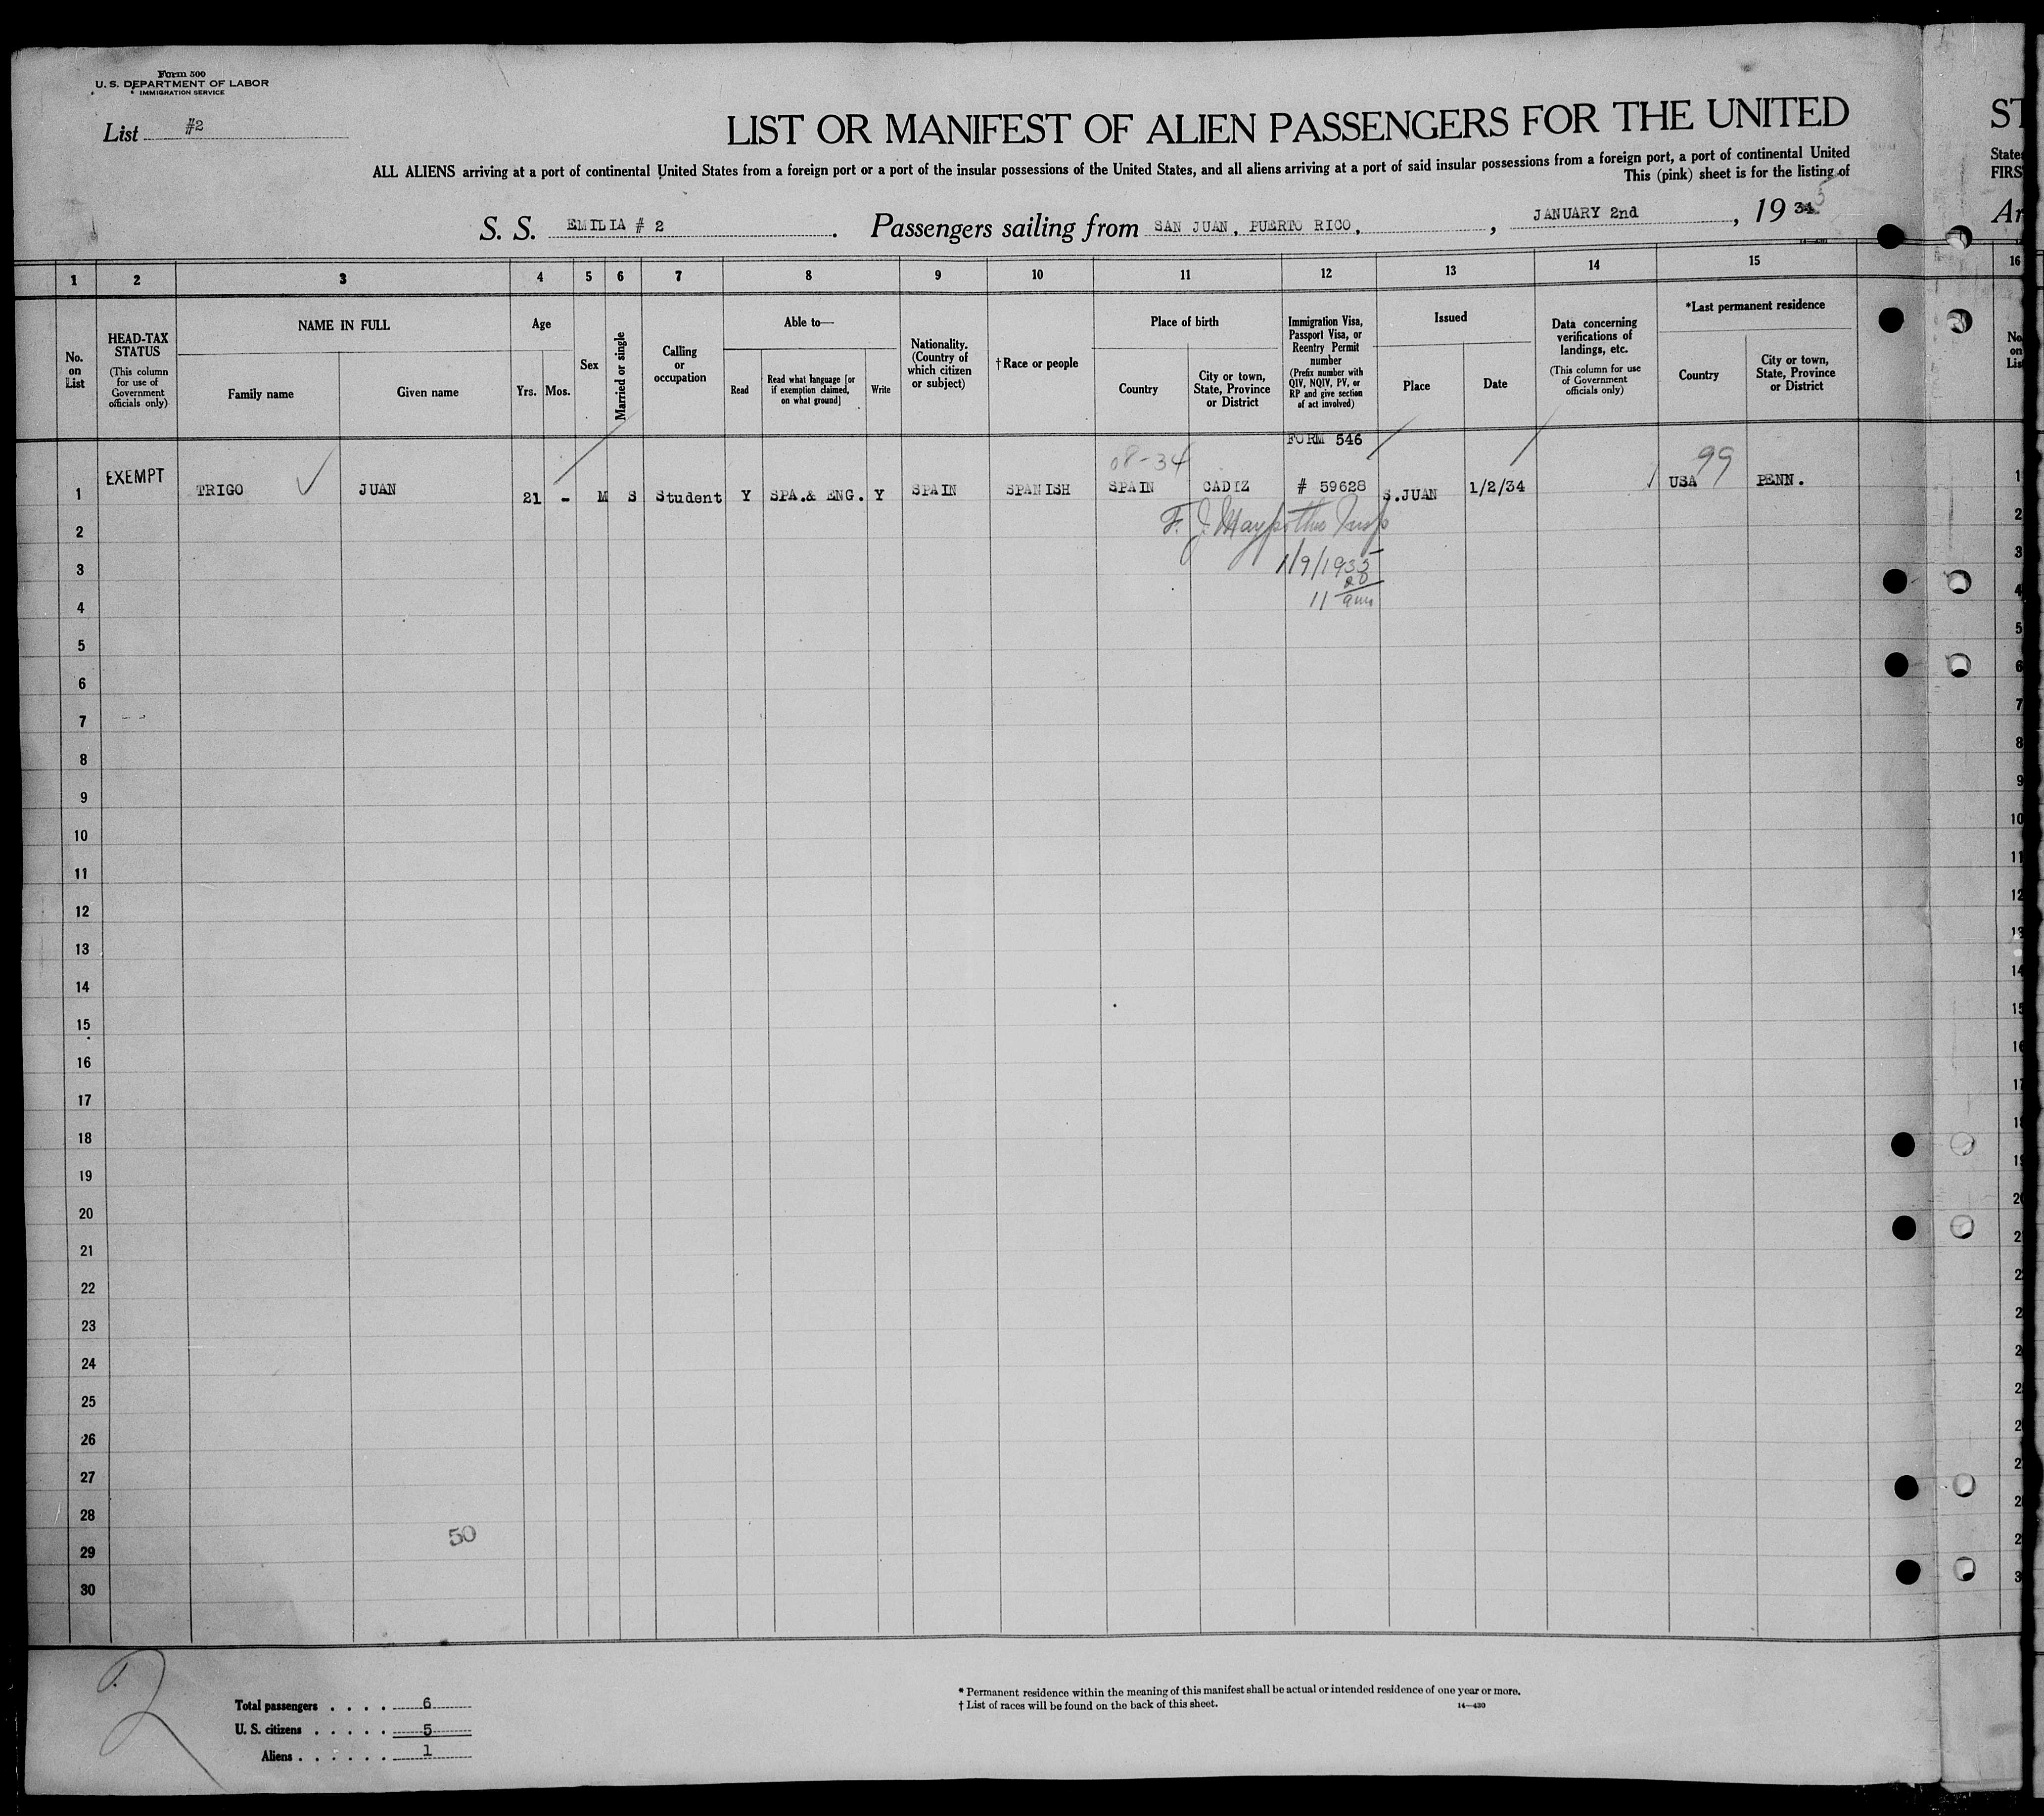 Form 500
U. S. DEPARTMENT OF LABOR
IMMIGRATION SERVICE
List #2
LIST OR MANIFEST OF ALIEN PASSENGERS FOR THE UNITED
ST
ALL ALIENS arriving at a port of continental United States from a foreign port or a port of the insular possessions of the United States, and all aliens arriving at a port of said insular possessions from a foreign port, a port of continental United
States
This (pink) sheet is for the listing of
FIRS
S. S. EMILIA # 2 . Passengers sailing from SAN JUAN, PUERTO RICO, , JANUARY 2nd , 19 34 5
Ar
14—430
1 2 3 4 5 6 7 8 9 10 11 12 13 14 15 16
No. on List
HEAD-TAX STATUS
(This column for use of Government officials only)
NAME IN FULL
Family name Given name
Age
Yrs. Mos.
Sex
Married or single
Calling or occupation
Able to—
Read
Read what language [or if exemption claimed, on what ground]
Write
Nationality. (Country of which citizen or subject)
†Race or people
Place of birth
Country
City or town, State, Province or District
Immigration Visa, Passport Visa, or Reentry Permit number
(Prefix number with QIV, NQIV, PV, or RP and give section of act involved)
Issued
Place Date
Data concerning verifications of landings, etc.
(This column for use of Government officials only)
*Last permanent residence
Country
City or town, State, Province or District
No. on List
FORM 546
08-34
99
1 EXEMPT TRIGO JUAN 21 - M S Student Y SPA.& ENG. Y SPAIN SPANISH SPAIN CADIZ # 59628 S.JUAN 1/2/34 USA PENN. 1
F. J. Insp
2
1/9/1935
3
11 20 am
4
5
6
7
8
9
10
11
12
13
14
15
16
17
18
19
20
21
22
23
24
25
26
27
28
50
29
30
2
Total passengers . . . . 6
U. S. citizens . . . . . 5
Aliens . . . . . . 1
* Permanent residence within the meaning of this manifest shall be actual or intended residence of one year or more.
† List of races will be found on the back of this sheet.
14—430